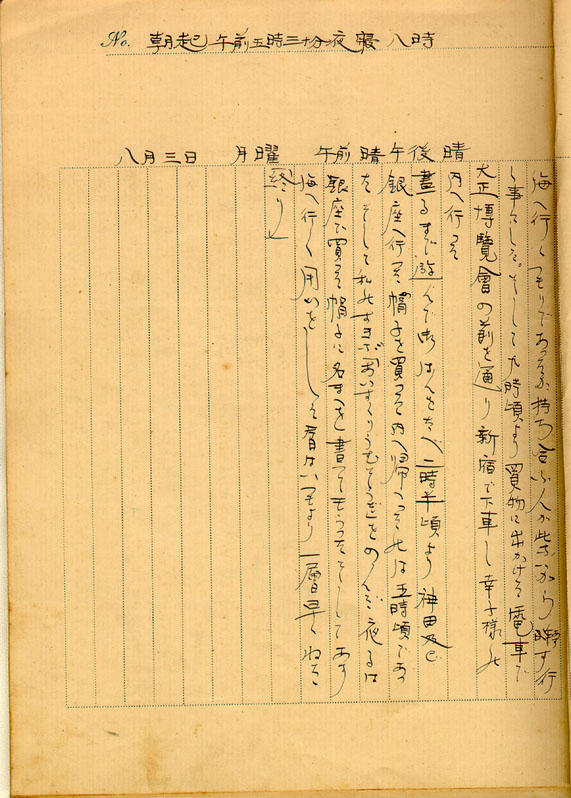 No. 朝起 午前五時三十分夜寝 八時
八月三日 月曜 午前 晴 午後 晴
海へ行くつもりであったが持ち合ふ人が出来
事にした。そして九時頃より買物に出かけて電車で
大正博覧會の前を通り新宿で下車し幸子様の
内へ行って
晝るまで遊んで御はんをたべ二時半頃より神田及び
銀座へ行って帽子を買って内へ帰へったのは五時頃であっ
た そして のすきなあいすくりうむそうだをのんだ夜るは
銀座で買った帽子に名まへを書いてもらった そしてあす
海へ行く用いをしして晋はいつもより一層早くねた
終り